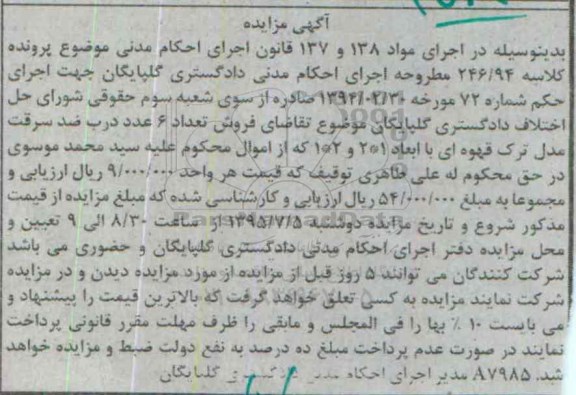 آگهی مزایده
بدینوسیله در اجرای مواد ۱۳۸ و ۱۳۷ قانون اجرای احکام مدنی موضوع پرونده
کلاسه ۲۴۶/۹۴ مطروحه اجرای احکام مدنی دادگستری گلپایگان جهت اجرای
حکم شماره ۷۲ مورخه ۱۳۹۴/۰۲/۳۰ صادره از سوی شعبه سوم حقوقی شورای حل
اختلاف دادگستری گلپایگان موضوع تقاضای فروش تعداد ۶ عدد درب ضد سرقت
مدل ترک قهوه ای با ابعاد ۱*۲ و ۲*۱ که از اموال محکوم علیه سید محمد موسوی
در حق محکوم له علی طاهری توقیف که قیمت هر واحد ۹/۰۰۰/۰۰۰ ریال ارزیابی و
مجموعا به مبلغ ۵۴/۰۰۰/۰۰۰ ریال ارزیابی و کارشناسی شده که مبلغ مزایده از قیمت
مذکور شروع و تاریخ مزایده دوشنبه ۱۳۹۵/۷/۵ از ساعت ۸/۳۰ الی ۹ تعیین و
محل مزایده دفتر اجرای احکام مدنی دادگستری گلپایگان و حضوری می باشد
شرکت کنندگان می توانند ۵ روز قبل از مزایده از مورد مزایده دیدن و در مزایده
شرکت نمایند مزایده به کسی تعلق خواهد گرفت که بالاترین قیمت را پیشنهاد و
می بایست ۱۰ ٪ بها را فی المجلس و مابقی را ظرف مهلت مقرر قانونی پرداخت
نمایند در صورت عدم پرداخت مبلغ ده درصد به نفع دولت ضبط و مزایده خواهد
شد. A۷۹۸۵ مدیر اجرای احکام مدنی دادگستری گلپایگان